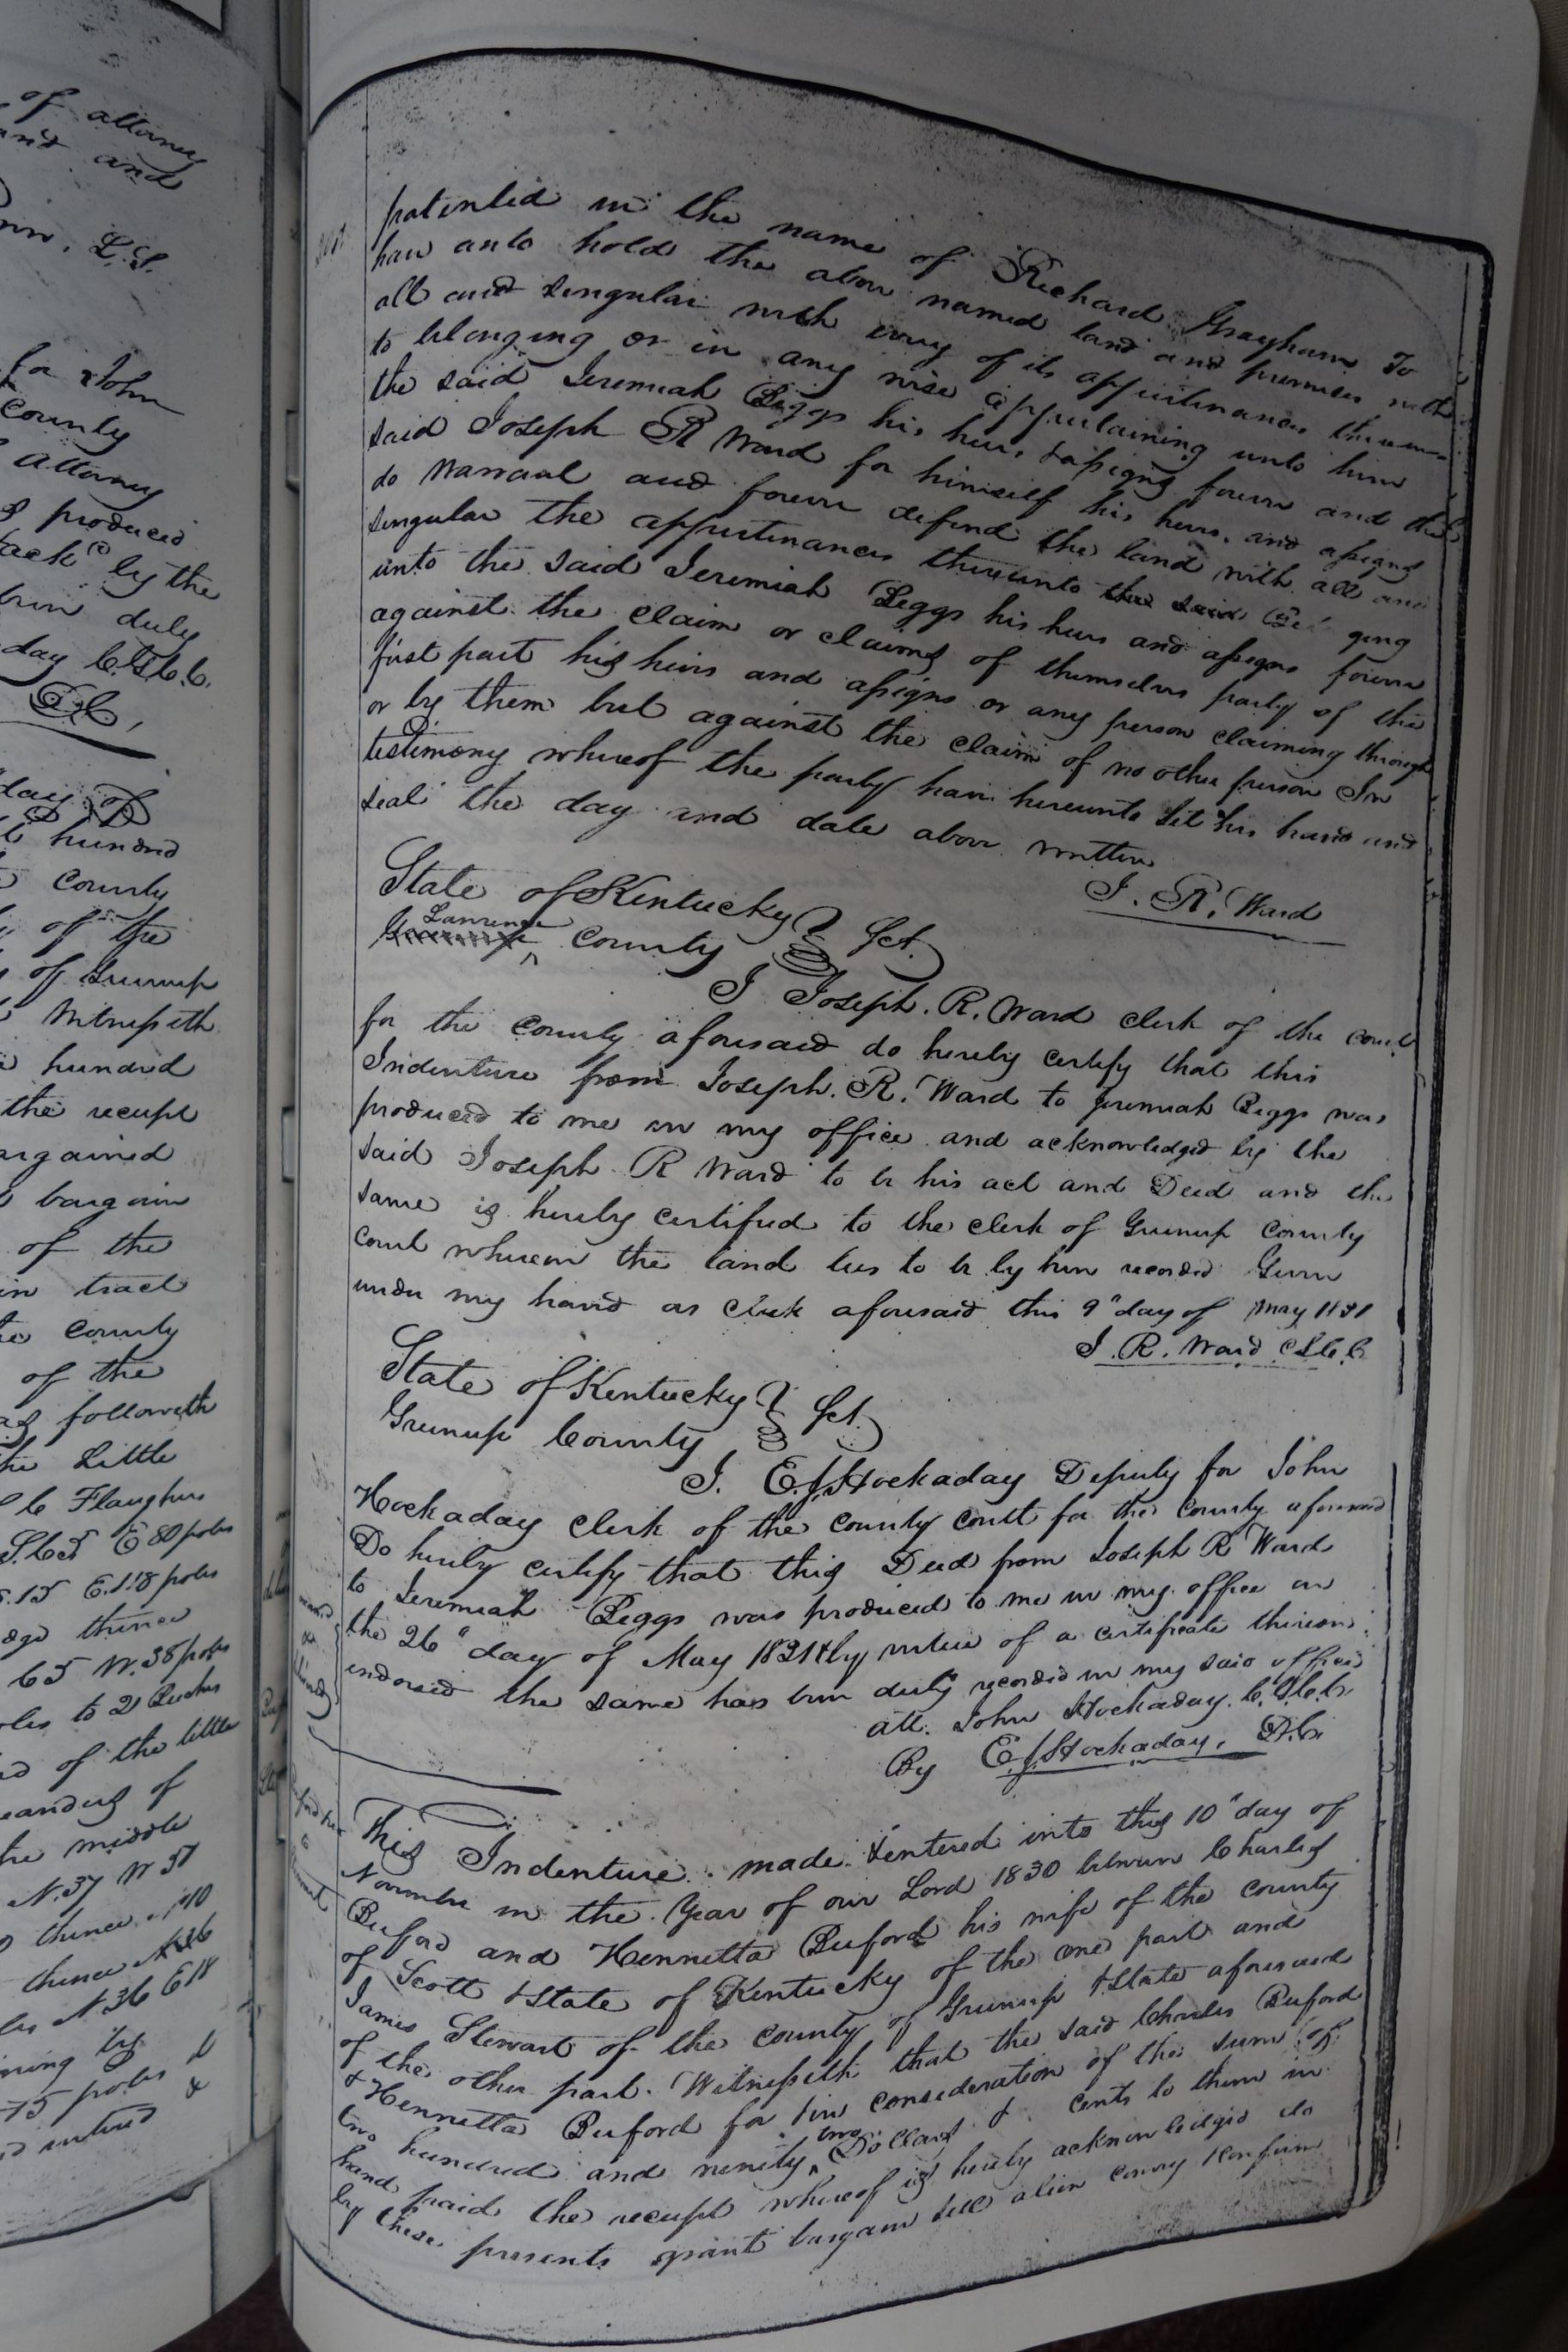 of attorney
and and
L.S.
for John
County
attorney
produced
ack^d by the
duly
day
D.C.
day of
hundred
County
of the
of Greenup
Witnesseth
hundred
the receipt
argained
bargain
of the
in tract
County
of the
as followeth
the Little
Flaughers
E 80 poles
S.15 E.118 poles
thence
65 W. 38 poles
to 2 Buches
of the little
meanders of
the middle
N.37 W 57
thence
thence N36
N36 E 18
by
75 poles
patented in the name of Richard Grayham To
have anto hold the above named land and premises with
all and singular with every of its appertinances thereun
to belonging or in any wise appertaining unto him
the said Jeremiah Beggs his heirs & assigns forever and the
said Joseph R Ward for himself his heirs, and assigns
do Warrant and forever defend the land with all and
singular the appertinances thereunto the said Be ging
unto the said Jeremiah Beggs his heirs and assigns forever
against the claim or claims of themselves party of the
first part his heirs and assigns or any person claiming through
or by them but against the claim of no other person In
testimony whereof the party have hereunto set his hand and
seal the day and date above written
J. R. Ward
State of Kentucky } Sct.
Lawrence
County
I Joseph. R. Ward clerk of the court
for the County aforesaid do hereby certify that this
Indenture from Joseph. R. Ward to Jeremiah Beggs was
produced to me in my office and acknowledged by the
said Joseph R Ward to be his act and Deed and the
same is hereby certified to the clerk of Greenup County
Court wherein the land lies to be by him recorded Given
under my hand as Clerk aforesaid this 9" day of May 1831
J. R. Ward C.L.C.C.
State of Kentucky } Sct.
Greenup County
I. E. J. Hockaday Deputy for John
Hockaday clerk of the county court for the County aforesaid
Do hereby certify that this Deed from Joseph R Ward
to Jeremiah Beggs was produced to me in my office on
the 26" day of May 1831 & by virtue of a certificate thereon
endorsed the same has been duly recorded in my said office
att. John Hockaday. C.G.C.C.
By E. J. Hockaday, D.C.
Buford
to
Stewart
This Indenture made & entered into this 10" day of
November in the Year of our Lord 1830 between Charles
Buford and Hennetta Buford his wife of the county
of Scott & State of Kentucky of the one part and
James Stewart of the County of Greenup & State aforesaid
of the other part. Witnesseth that the said Charles Buford
& Hennetta Buford for & in consideration of the sum of
two hundred and ninety two Dollars & cents to them in
hand paid the receipt whereof is hereby acknowledged do
by these presents grant bargain sell alien convey & confirm